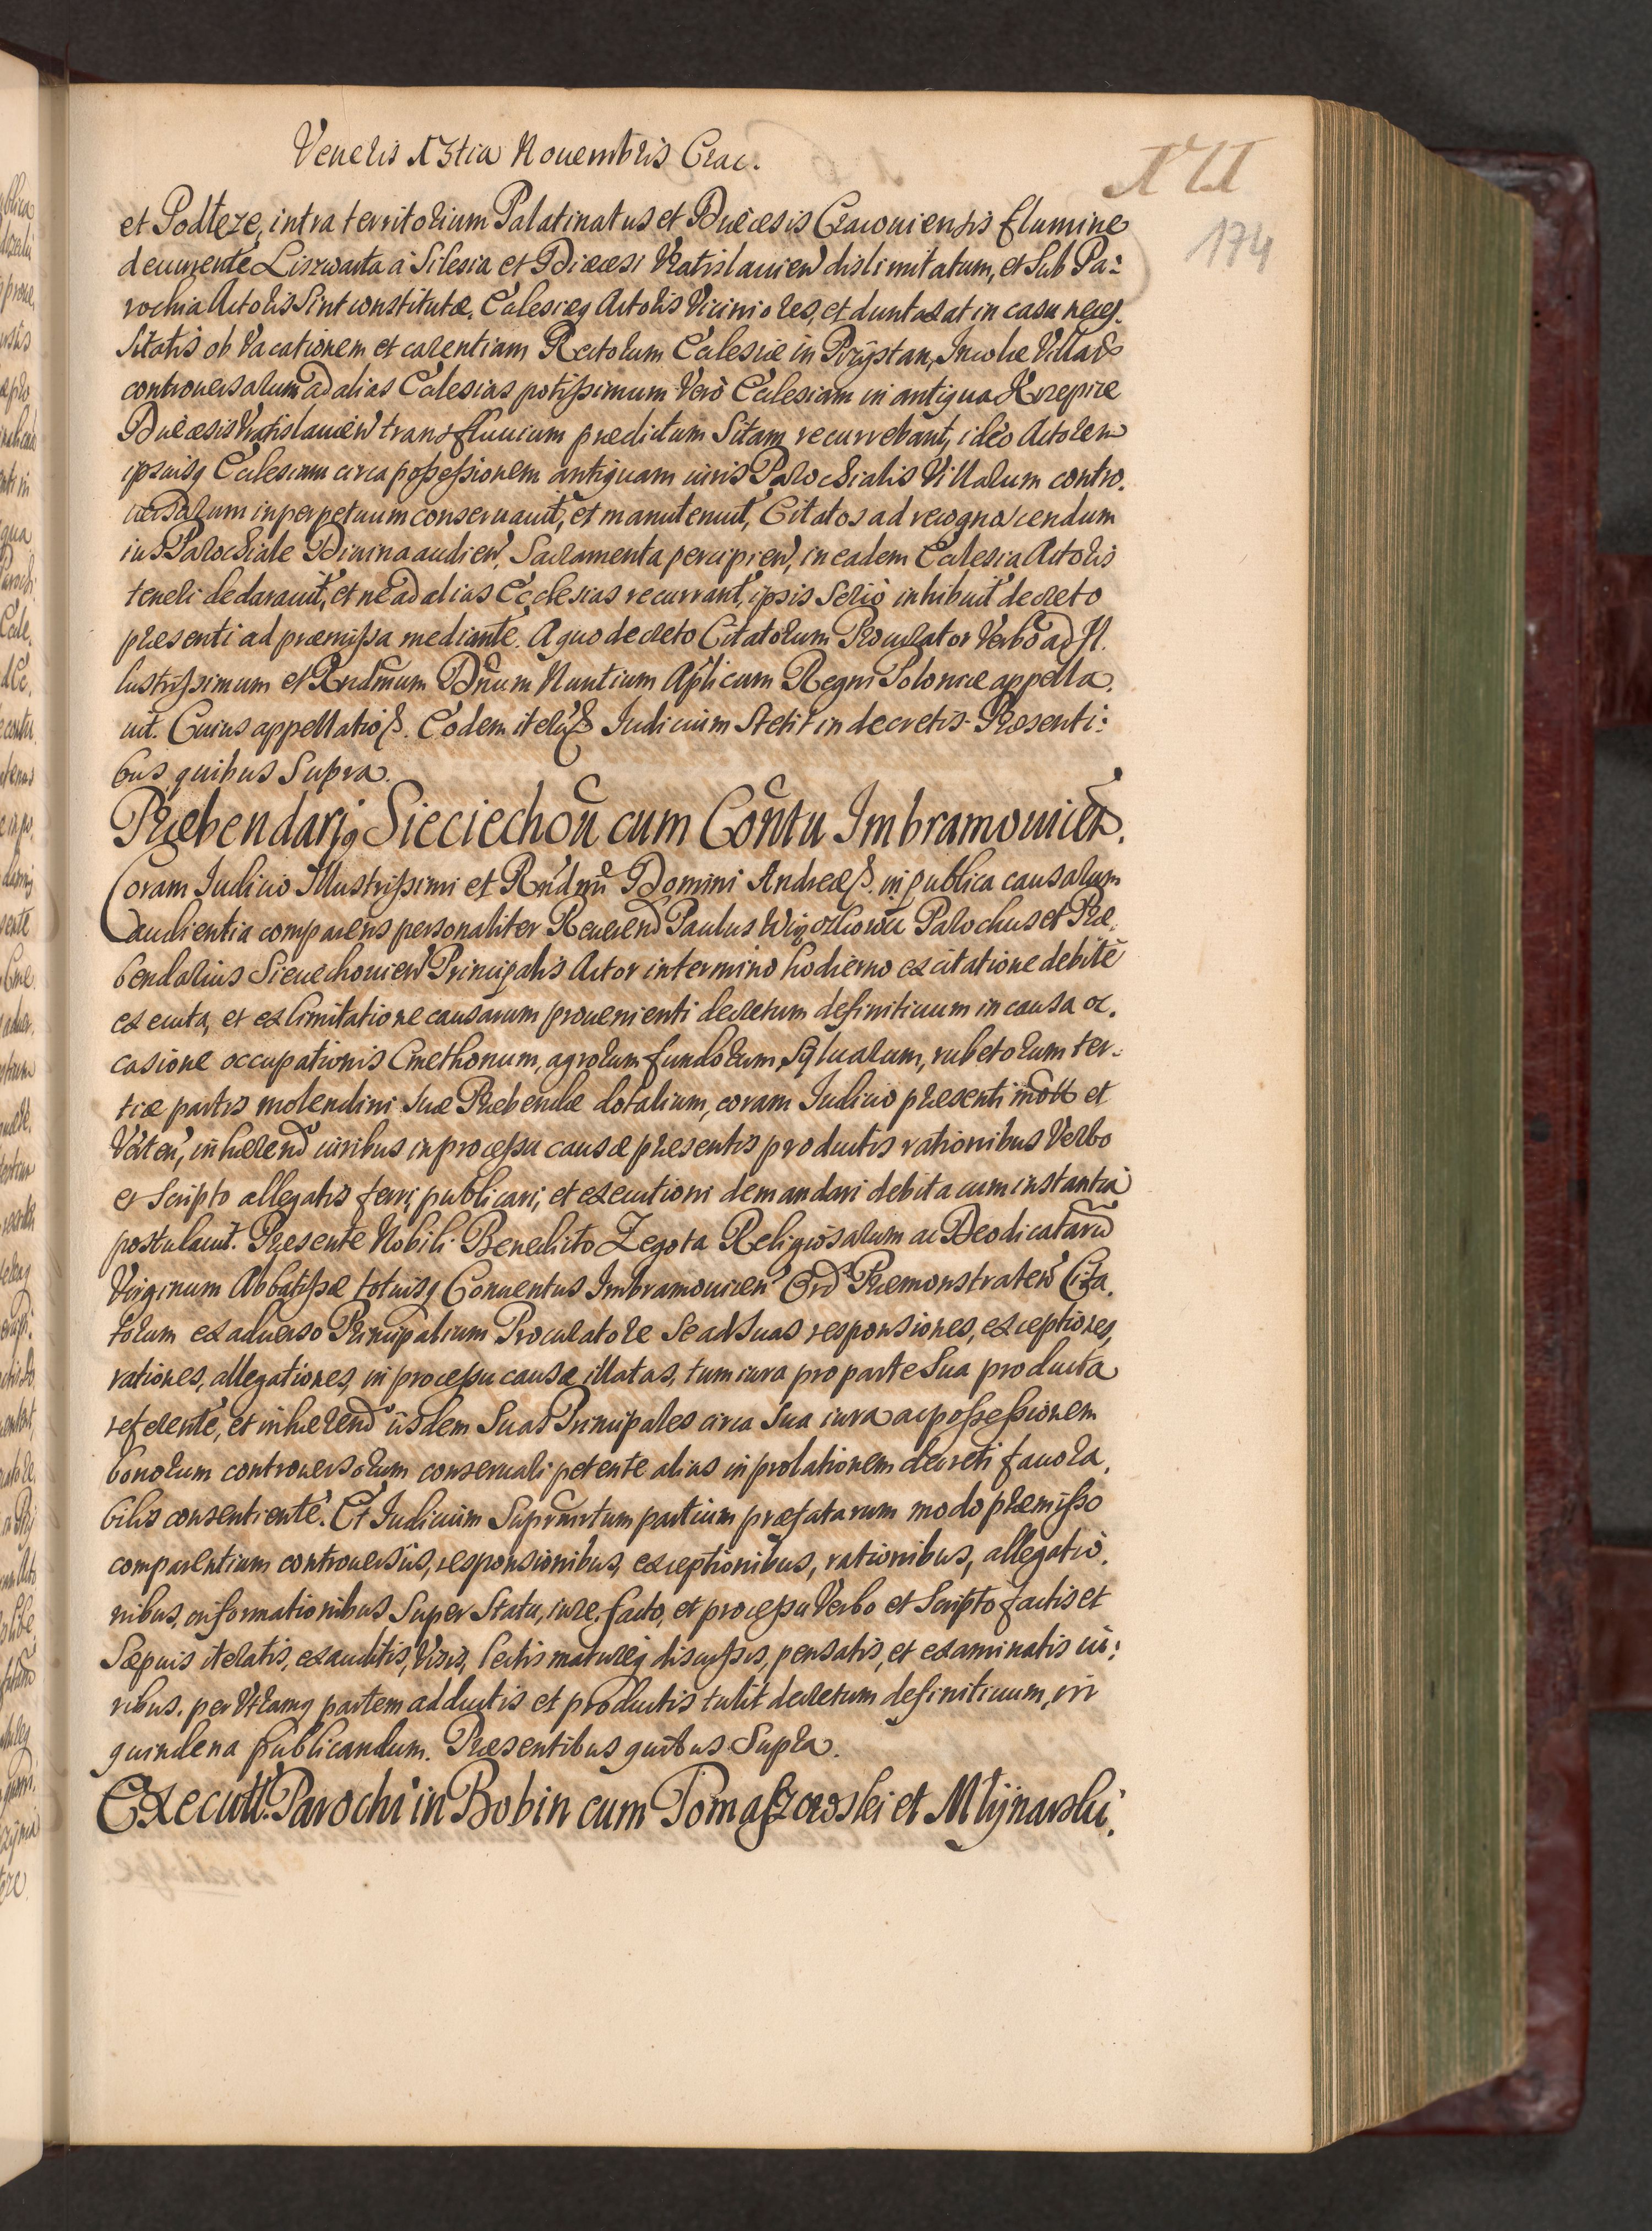 Veneris 13tia Nouembris Crac.
174
et Podłeze, intra territorium Palatinatus et Diæcesis Cracouiensis flumine
decurrente Liszwarta à Silesia et Diæcesi Vratislauien dislimitatum, et sub Pa:
rochia Actoris sint constitutæ. Ecclesiæq Actoris viciniores, et duntaxat in casu neces.
sitatis ob vacationem et carentiam Rectorum Ecclesiæ in Przÿstan, Incolæ Villar
controuersarum ad alias Ecclesias potissimum verò Ecclesiam in antiqua Krzepice
Diæcesis Vratislauien trans fluuium prædictum sitam recurrebant, ideò Actorem
ipsiusq Ecclesiam circa possessionem antiquam iuris Parochialis Villarum contro.
uersarum in perpetuum conseruauit, et manutenuit, Citatos ad recognoscendum
ius Parochiale Diuina audien, Sacramenta percipien, in eadem Ecclesia Actoris
teneri declarauit, et ne ad alias Ecclesias recurrant, ipsis seriò inhibuit decreto
præsenti ad præmissa mediante. A quo decreto Citatorum Procurator verbo ad Il.
lustrissimum et Rndmum Dnum Nuntium Aplicum Regni Poloniæ appella.
uit. Cuius appellatio p. Eodem iterù p Iudicium stetit in decretis. Præsenti:
bus quibus supra.
Præbendarjq Sieciechoū cum Contu Imbramouicen.
Coram Iudicio Illustrissimi et Rndmi Domini Andreæ p. in publica causarum
audientia comparens personaliter Reuerend Paulus Parochus et Præ.
bendarius Sieciechouien Principalis Actor in termino hodierno ex citatione debitè
executa, et ex limitatione causarum prouenienti decretum definitiuum in causa oc.
casione occupationis Cmethonum, agrorum fundorum, syluarum, rubetorum ter.
tiæ partis molendini suæ Præbendæ dotalium, coram Iudicio præsenti mott et
Verten, inhærend iuribus in processu causæ præsentis productis rationibus Verbo
et Scripto allegatis ferri, publicari, et executioni demandari debita cum instantia
postulauit. Præsente Nobili Benedicto Zegota Religiosarum ac Deodicatarū
Virginum Abbatissæ totiusq Conuentus Imbramouicen Ord Præmonstraten Cita.
torum ex aduerso Principalium Procuratore se ad suas responsiones, exceptiones,
rationes, allegationes, in processu causæ illatas, tum iura pro parte sua producta
referente, et inhærend iisdem suas Principales circa sua iura ac possessionem
bonorum controuersorum conseruari petente alias in prolationem decreti fauora.
bilis consentiente. Et Iudicium Suprascriptum partium præfatarum modo præmisso
comparentium controuersiis, responsionibus, exceptionibus, rationibus, allegatio.
nibus, informationibus super statu, iure, facto, et processu Verbo et Scripto factis et
sæpius iteratis, exauditis, Visis, lectis matureq discussis, pensatis, et examinatis iu:
ribus. per Vtramq partem adductis et productis tulit decretum definitiuum, in
quindena publicandum. Præsentibus quibus supra.
Executt. Parochi in Bobin cum Tomaszowski et Młÿnarski.